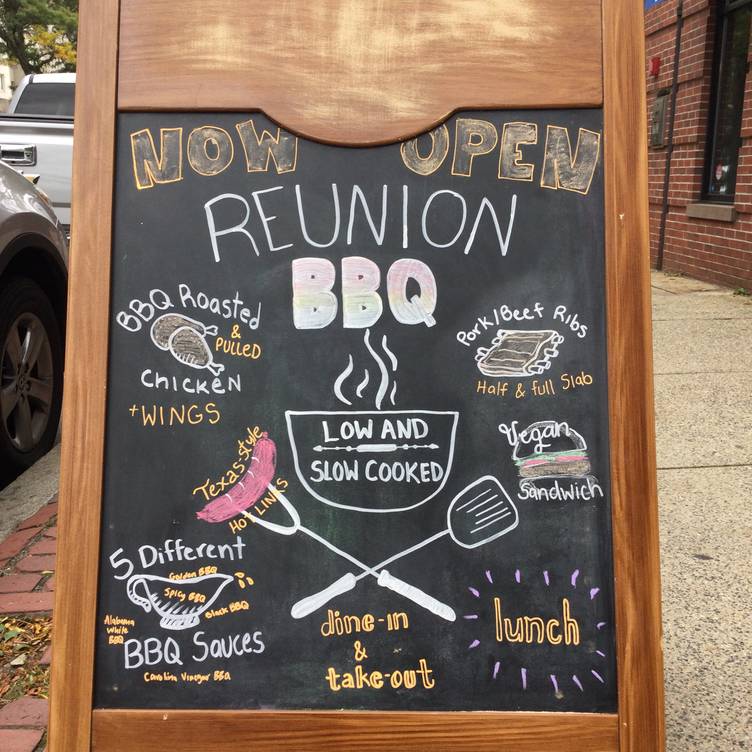 NOW OPEN
REUNION
BBQ
BBQ Roasted
& PULLED
CHICKEN
+ WINGS
Pork/Beef Ribs
Half & full Slab
LOW AND
SLOW COOKED
Texas-style
HOT LINKS
Vegan
Sandwich
5 Different
Golden BBQ
Spicy BBQ
Black BBQ
Alabama
White
BBQ
BBQ Sauces
Carolina Vinegar BBQ
dine-in
&
take-out
lunch